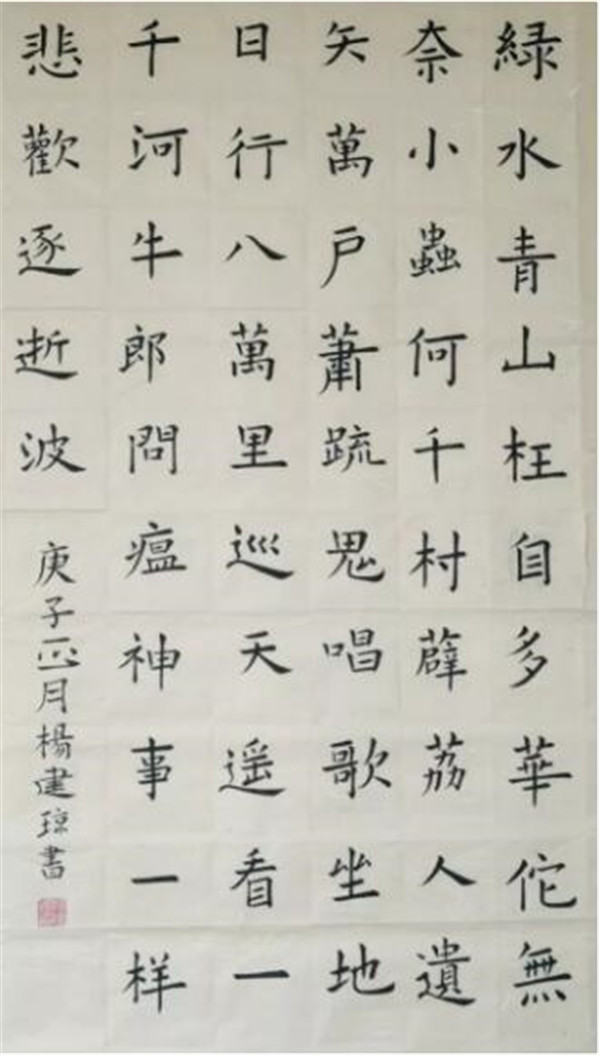 綠水青山枉自多華佗無
奈小蟲何千村薜荔人遺
矢萬戶蕭疏鬼唱歌坐地
日行八萬里巡天遥看一
千河牛郎問瘟神事一样
悲歡逐逝波
庚子正月楊建琼書